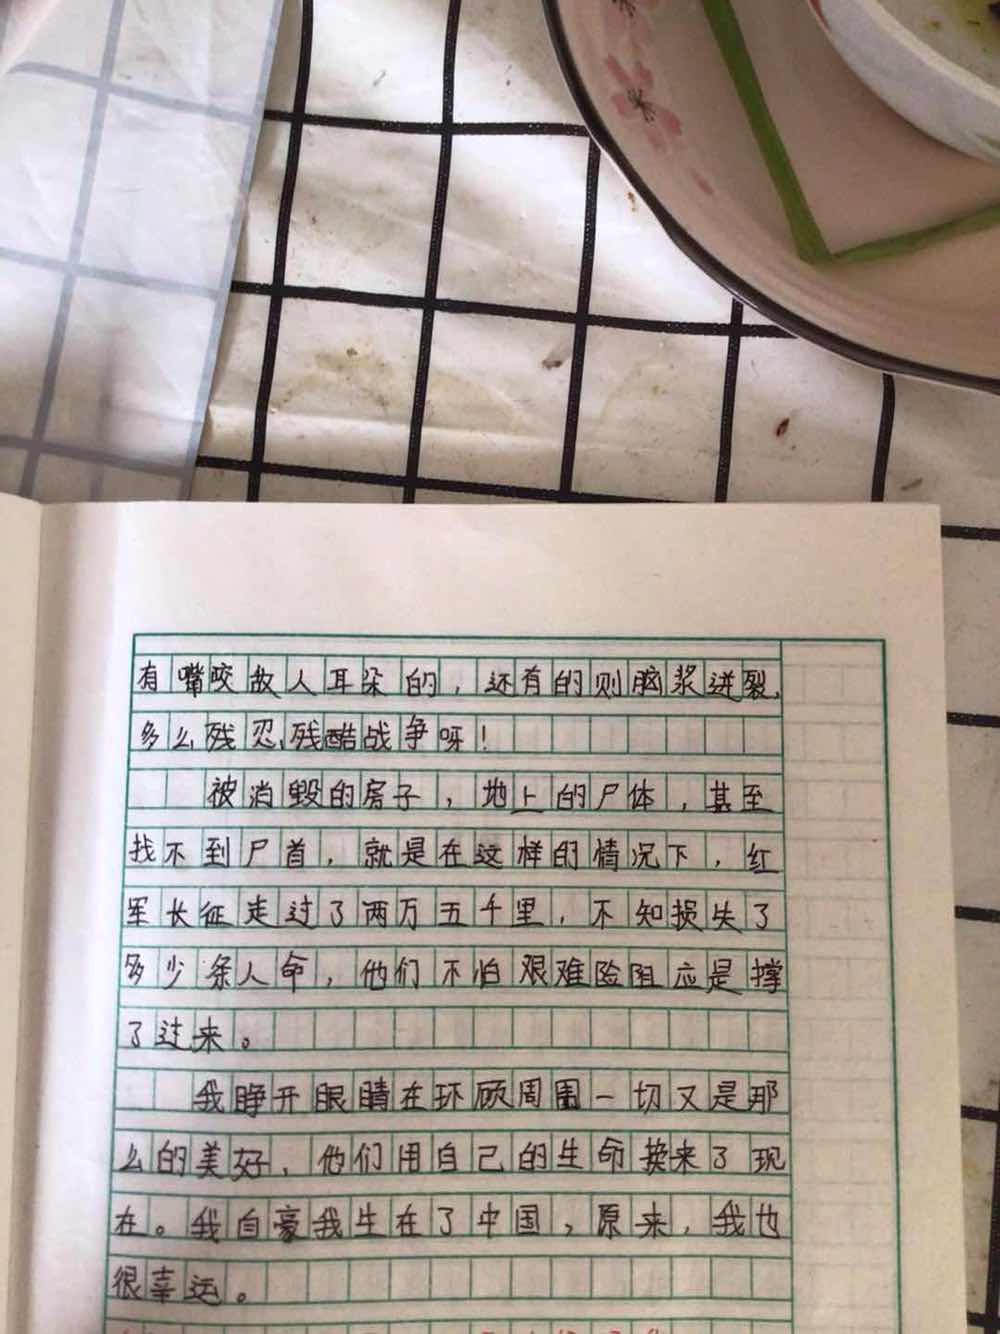 有嘴咬敌人耳朵的，还有的则脑浆迸裂，
多么残忍、残酷战争呀！
被消毁的房子，地上的尸体，甚至
找不到尸首，就是在这样的情况下，红
军长征走过了两万五千里，不知损失了
多少条人命，他们不怕艰难险阻应是撑
了过来。
我睁开眼睛在环顾周围一切又是那
么的美好，他们用自己的生命换来了现
在。我自豪我生在了中国，原来，我也
很幸运。